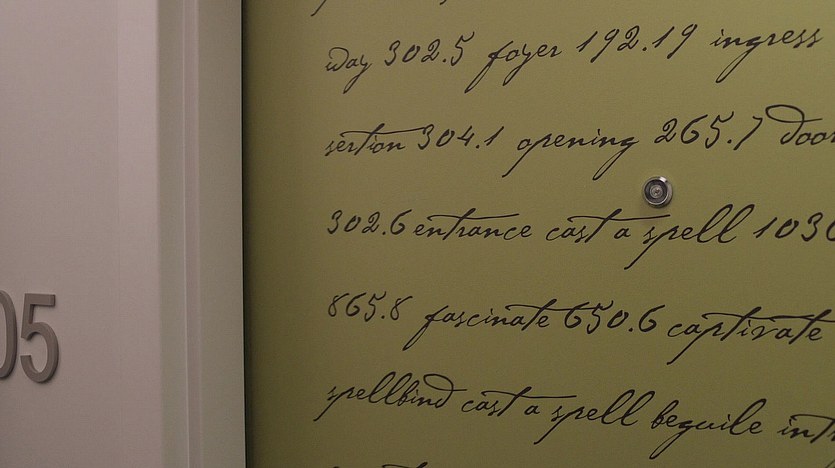 way 302.5 foyer 192.19 ingress
sertion 304.1 opening 265.7 door
302.6 entrance cast a spell 1036
865.8 fascinate 650.6 captivate
spellbind cast a spell beguile int
05